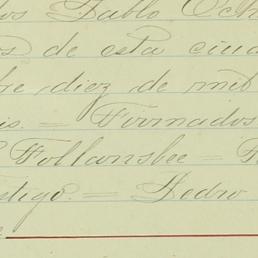 dos Pablo Och
os de esta ciuda
bre diez de mil
is. = Firmados
Follansbee = P
estigo. = Pedro